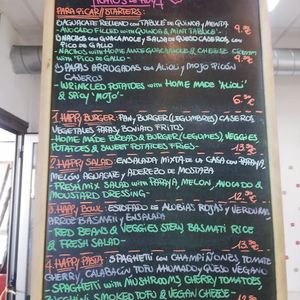 PARA PICAR//STARTERS:
AGUACATE RELLENO CON TABULÉ DE QUINOA Y MENTA
-AVOCADO FILLED WITH QUINOA & MINT TABULÉ-
NACHOS CON GUACAMOLE Y SALSA DE QUESO CASEROS, CON
PICO DE GALLO
-NACHOS WITH HOME MADE GUACAMOLE & CHEESE CREAM
WITH PICO DE GALLO-
PAPAS ARRUGADAS CON ALIOLI Y MOJO PICÓN
CASEROS
-WRINKLED POTATOES WITH HOME MADE ALIOLI
& SPICY "MOJO"
1. HAPPY BURGER: PAN, BURGER (LEGUMBRES) CASEROS
VEGETALES PAPAS BONIATO FRITOS
-HOME MADE BREAD & BURGER (LEGUMES) VEGGIES
POTATOES & SWEET POTATOES FRIES-
2. HAPPY SALAD: ENSALADA MIXTA DE LA CASA CON PAPAYA
MELÓN AGUACATE Y ADEREZO DE MOSTAZA
-FRESH MIX SALAD WITH PAPAYA, MELON, AVOCADO &
MOUSTARD DRESSING-
3. HAPPY BOWL: ESTOFADO DE ALUBIAS ROJAS Y VERDURAS
ARROZ BASMATI Y ENSALADA
RED BEANS & VEGGIES STEW BASMATI RICE
& FRESH SALAD-
4. HAPPY PASTA: SPAGHETTI CON CHAMPIÑONES, TOMATE
CHERRY, CALABACÍN TOFU AHUMADO Y QUESO VEGANO
-SPAGHETTI WITH MUSHROOMS CHERRY TOMATE
SMOKED TOFU & VEGAN CHEESE